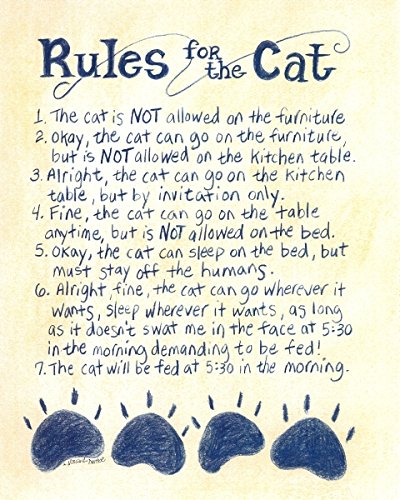 Rules for the Cat
1. The cat is NOT allowed on the furniture
2. Okay, the cat can go on the furniture,
but is NOT allowed on the kitchen table.
3. Alright, the cat can go on the kitchen
table, but by invitation only.
4. Fine, the cat can go on the table
anytime, but is NOT allowed on the bed.
5. Okay, the cat can sleep on the bed, but
must stay off the humans.
6. Alright, fine, the cat can go wherever it
wants, sleep wherever it wants, as long
as it doesn't swat me in the face at 5:30
in the morning demanding to be fed!
7. The cat will be fed at 5:30 in the morning.